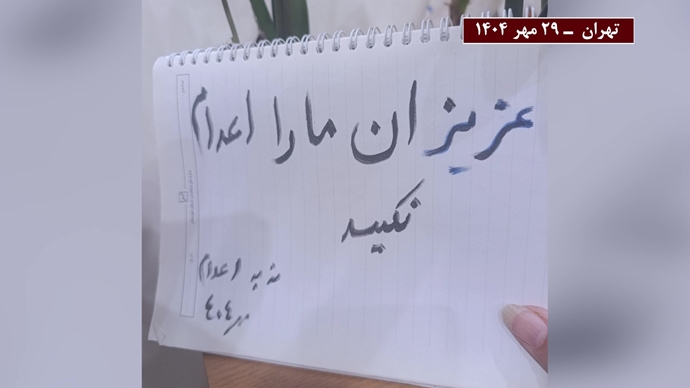 تهران – ۲۹ مهر ۱۴۰۴
عزیزان ما را اعدام
نکنید
نه به اعدام
مهر ۴۰۴